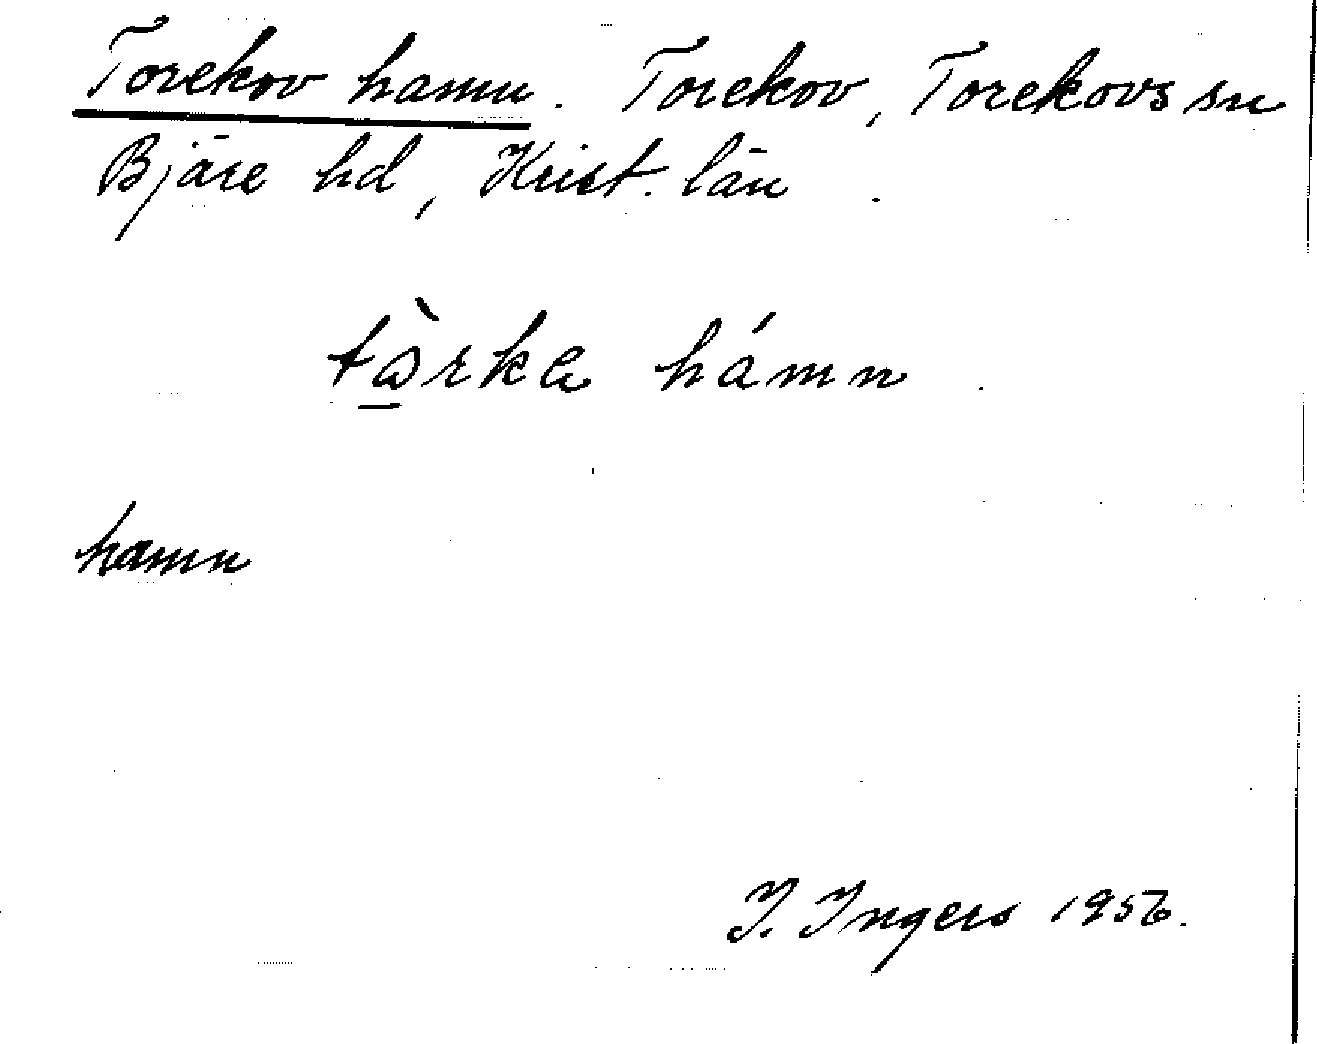 Torekov hamn. Torekov, Torekovs sn
Bjäre hd, Krist. län.
tàrka hámn.
hamn
I. Ingers 1956.